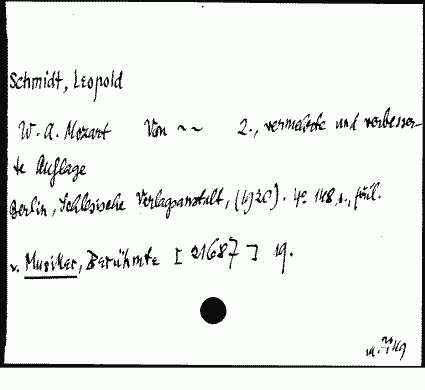 Schmidt, Leopold
W. A. Mozart Von ~~ 2., vermehrte und verbesser-
te Auflage
Berlin, Schlesische Verlagsanstalt, (1920). 4° 148 s.,
v. Musiker, Berühmte [21687] 19.